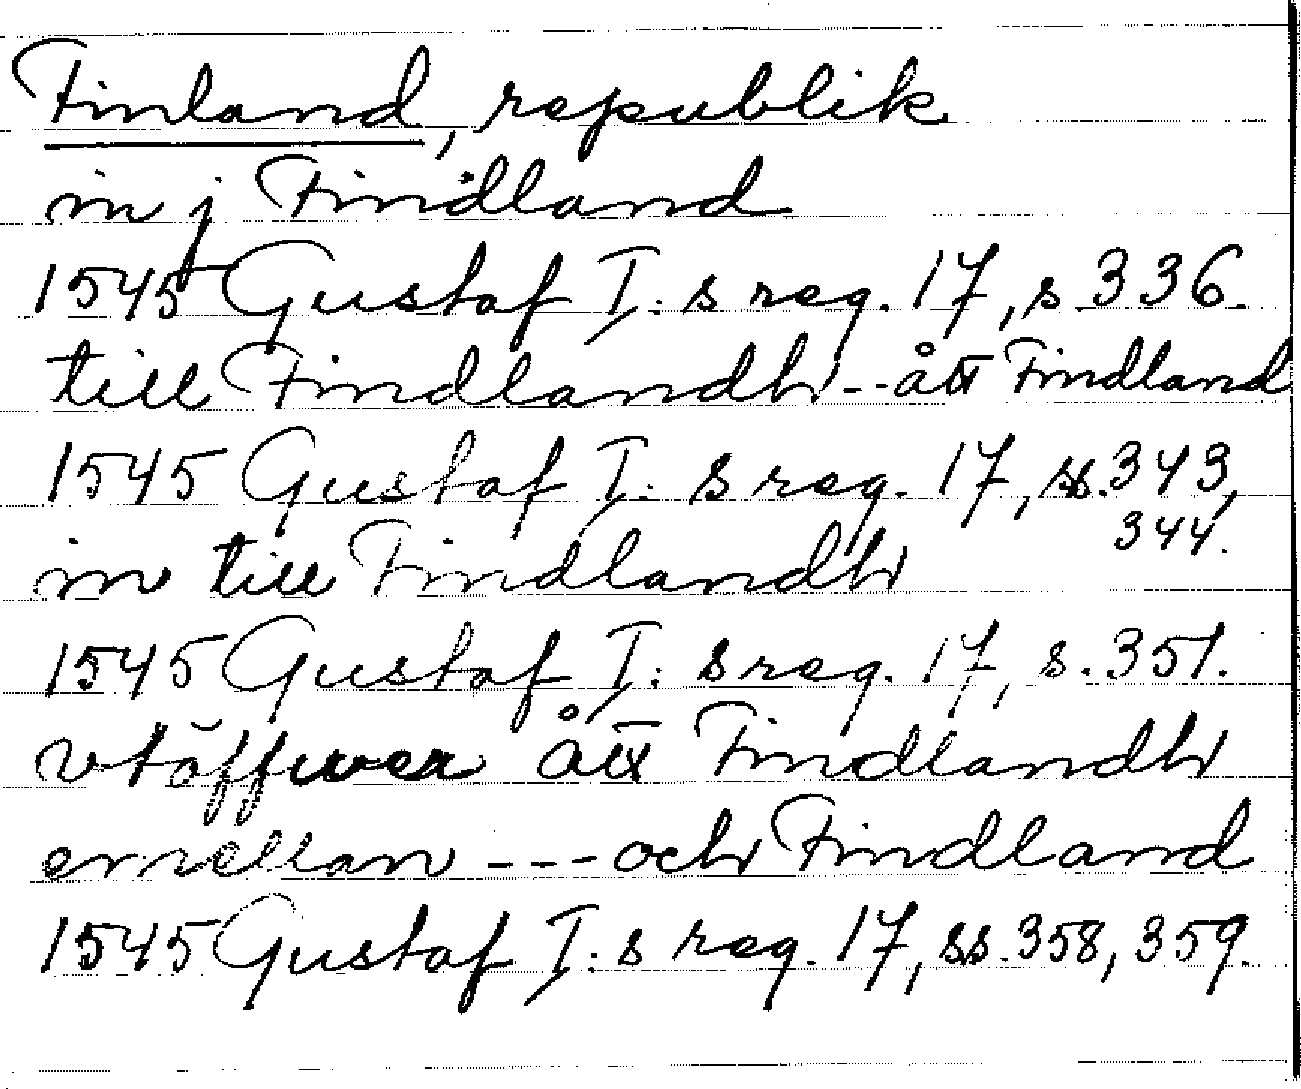 Finland, republik
in j Findland
1545 Gustaf I:s reg. 17, s. 336.
till Findlandh -- ått Findland
1545 Gustaf I:s reg. 17, ss. 343,
344.
in till Findlandh
1545 Gustaf I:s reg. 17, s. 351.
vtöffwer ått Findlandh
emellan --- och Findland
1545 Gustaf I:s reg. 17, ss. 358, 359.